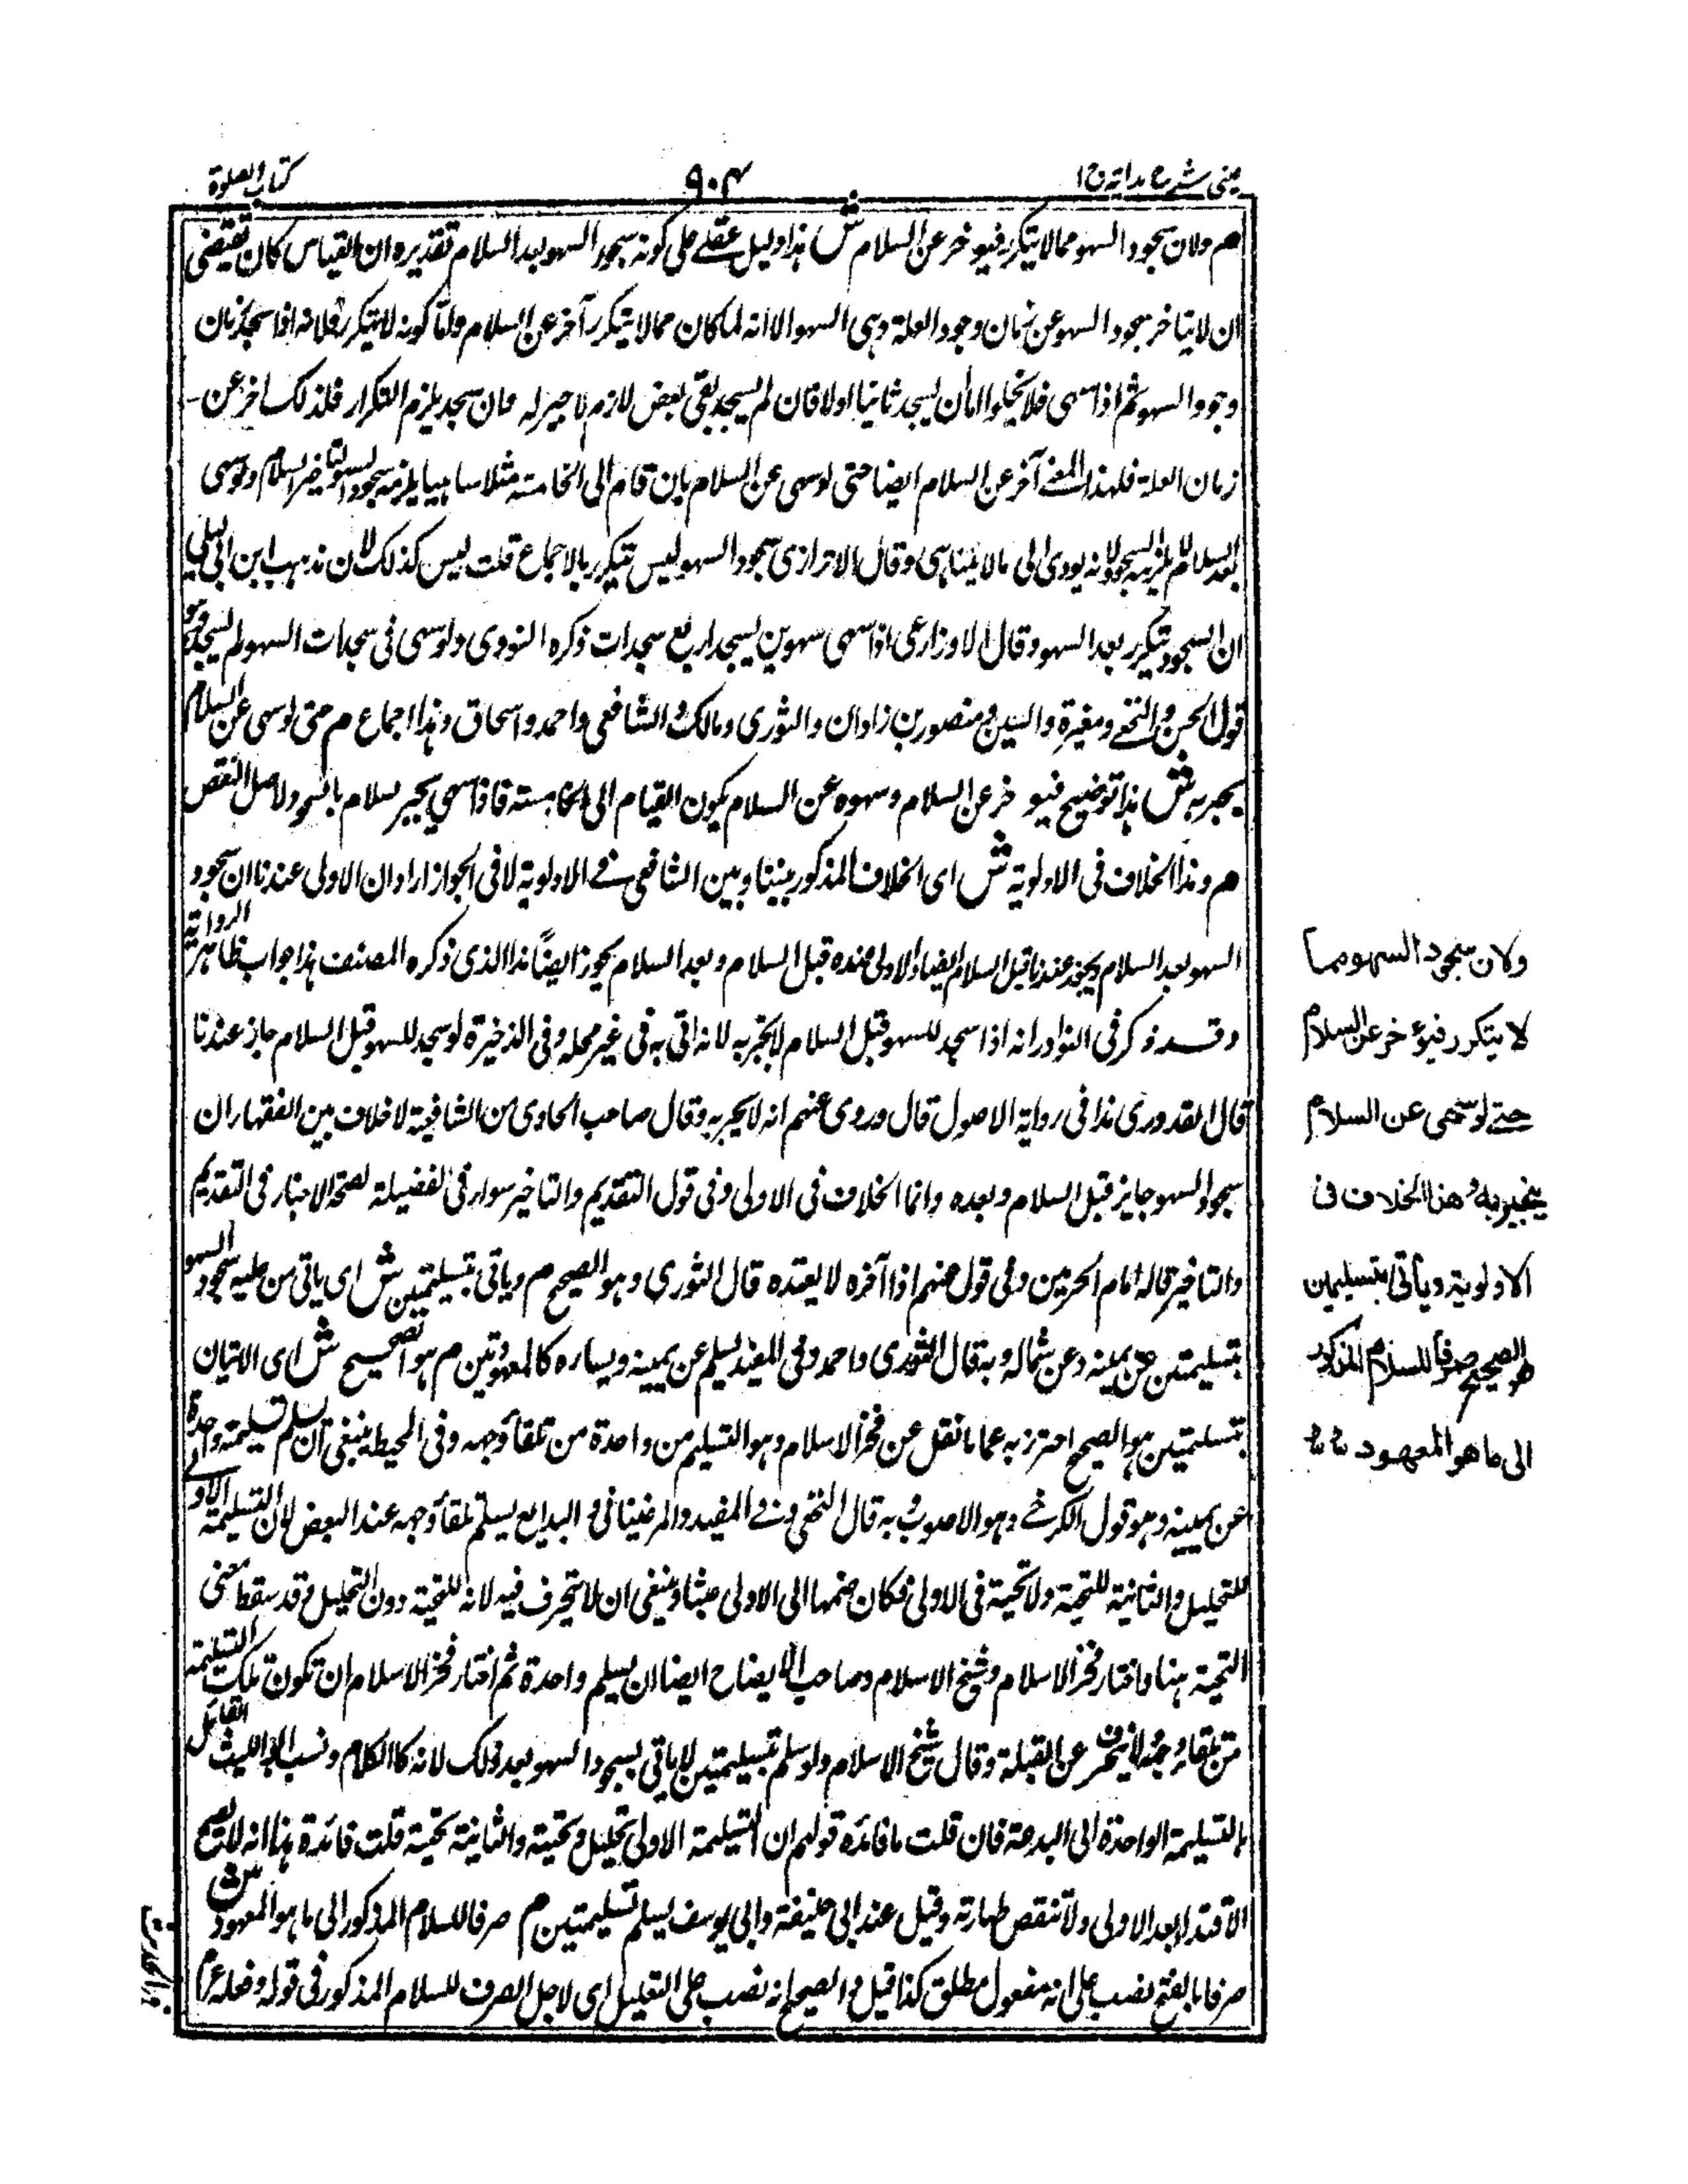 عینی شرح ہدایۃ ج۱
۹۰۴
کتاب الصلوۃ
م ولان سجود السهو مما لا یتکرر فیؤخر عن السلام ش هذا دلیل عقلے علی کونه سجود السهو بعد السلام تقدیره ان القیاس کان یقتضی
ان لا یتاخر سجود السهو عن زمان وجود العلة وهی السهو الا انه لما کان مما لا یتکرر آخر عن السلام واما کونه لا یتکرر فلانه اذا سجد زمان
وجود السهو ثم اذا سهی فلا یخلوا اما ان یسجد ثانیا اولا فان لم یسجد بقی نقص لازم لا جبر له وان سجد یلزم التکرار فلذلک اخر عن
زمان العلة فلهذا المعنے آخر عن السلام ایضا حتی لو سهی عن السلام بان قام الی الخامسة مثلا ساهیا یلزمه سجود السهو لتاخیر السلام ولو سهی
بعد السلام لا یلزمه السجود لانه یودی الی ما لا یتناهی وقال الاترازی سجود السهو لیس بتکرر بالاجماع قلت لیس کذلک لان مذهب ابن ابی لیلی
ان السجود یتکرر بعد السهو وقال الاوزاعی اذا سهی سهوین یسجد اربع سجدات ذکره النووی ولو سهی فی سجدات السهو لم یسجد وهو
قول الحسن والنخعے ومغیرة و منصور بن زاذان والثوری ومالک والشافعی واحمد واسحاق وهذا اجماع م حتی لو سهی عن السلام
یجبر به ش هذا توضیح فیؤخر عن السلام وسهوه عن السلام یکون القیام الی الخامسة فاذا سهی یجبر سلام بالسجود لاصل النقص
م وهذا الخلاف فی الاولویة ش ای الخلاف المذکور بیننا وبین الشافعی فے الاولویة لا فی الجواز اراد ان الاولی عندنا ان سجود
السهو بعد السلام ویجوز عندنا قبل السلام ایضا والاولی عنده قبل السلام وبعد السلام یجوز ایضاً هذا الذی ذکره المصنف هذا جواب ظاهر الروایة
وقد ذکر فی النوادر انه اذا سجد للسهو قبل السلام لا یجزیه لانه اتی به فی غیر محله وفی الذخیرة لو سجد للسهو قبل السلام جاز عندنا
قال القدوری هذا فی روایة الاصول قال وروی عنهم انه لا یجزیه وقال صاحب الحاوی من الشافعیة لا خلاف بین الفقهاء ان
سجود السهو جایز قبل السلام وبعده وانما الخلاف فی الاولی وفی قول التقدیم والتاخیر سواء فی الفضیلة لصحة الاخبار فی التقدیم
والتاخیر قاله امام الحرمین وفی قول منهم اذا آخره لا یعتده قال النوری وهو الصحیح م ویاتی بتسلیمتین ش ای یاتی من علیه سجود السهو
بتسلیمتین عن یمینه وعن شماله وبه قال الثوری واحمد وفی المفید یسلم عن یمینه ویساره کالمعهودتین م هو الصحیح ش ای الاتیان
بتسلیمتین هو الصحیح احترز به عما نقل عن فخر الاسلام وهو التسلیم من واحدة من تلقاء وجهه وفی المحیط ینبغی ان یسلم تسلیمة واحدة
عن یمینه وهو قول الکرخے وهو الاصوب وبه قال النخعی وفے المفید والمرغینانی و البدایع یسلم تلقاء وجهه عند البعض لان التسلیمة الاولے
للتحلیل والثانیة للتحیة ولا تحیة فی الاولی فکان ضمها الی الاولی عبثا وینبغی ان لا ینحرف فیه لانه للتحیة دون التحلیل وقد سقط معنی
التحیة هنا واختار فخر الاسلام وشیخ الاسلام وصاحب الایضاح ایضا ان یسلم واحدة ثم اختار فخر الاسلام ان تکون تلک التسلیمة
من تلقاء وجهه لا ینحرف عن القبلة وقال شیخ الاسلام ولو سلم تسلیمتین لا یاتی بسجود السهو بعد ذلک لانه کالکلام ونسب ابو اللیث القائل
بالتسلیمة الواحدة الی البدعة فان قلت ما فائده قولهم ان التسلیمة الاولی تحلیل وتحیة والثانیة تحیة قلت فائدة هذا انه لا یصح
الاقتداء بعد الاولی ولا تنقض طهارته وقیل عند ابی حنیفة وابی یوسف یسلم تسلیمتین م صرفا للسلام المذکور الی ما هو المعهود ش
صرفا بالفتح نصب علی انه مفعول مطلق کذا قیل والصحیح انه نصب علی التعلیل ای لاجل الصرف للسلام المذکور فی قوله وفعله عم
ولان سجود السهو مما
لا یتکرر فیؤخر عن السلام
حتے لو سهی عن السلام
ینجبر به وهذا الخلاف فی
الاولویة ویأتی بتسلیمتین
هو الصحیح صرفاً للسلام المذکور
الی ما هو المعهود